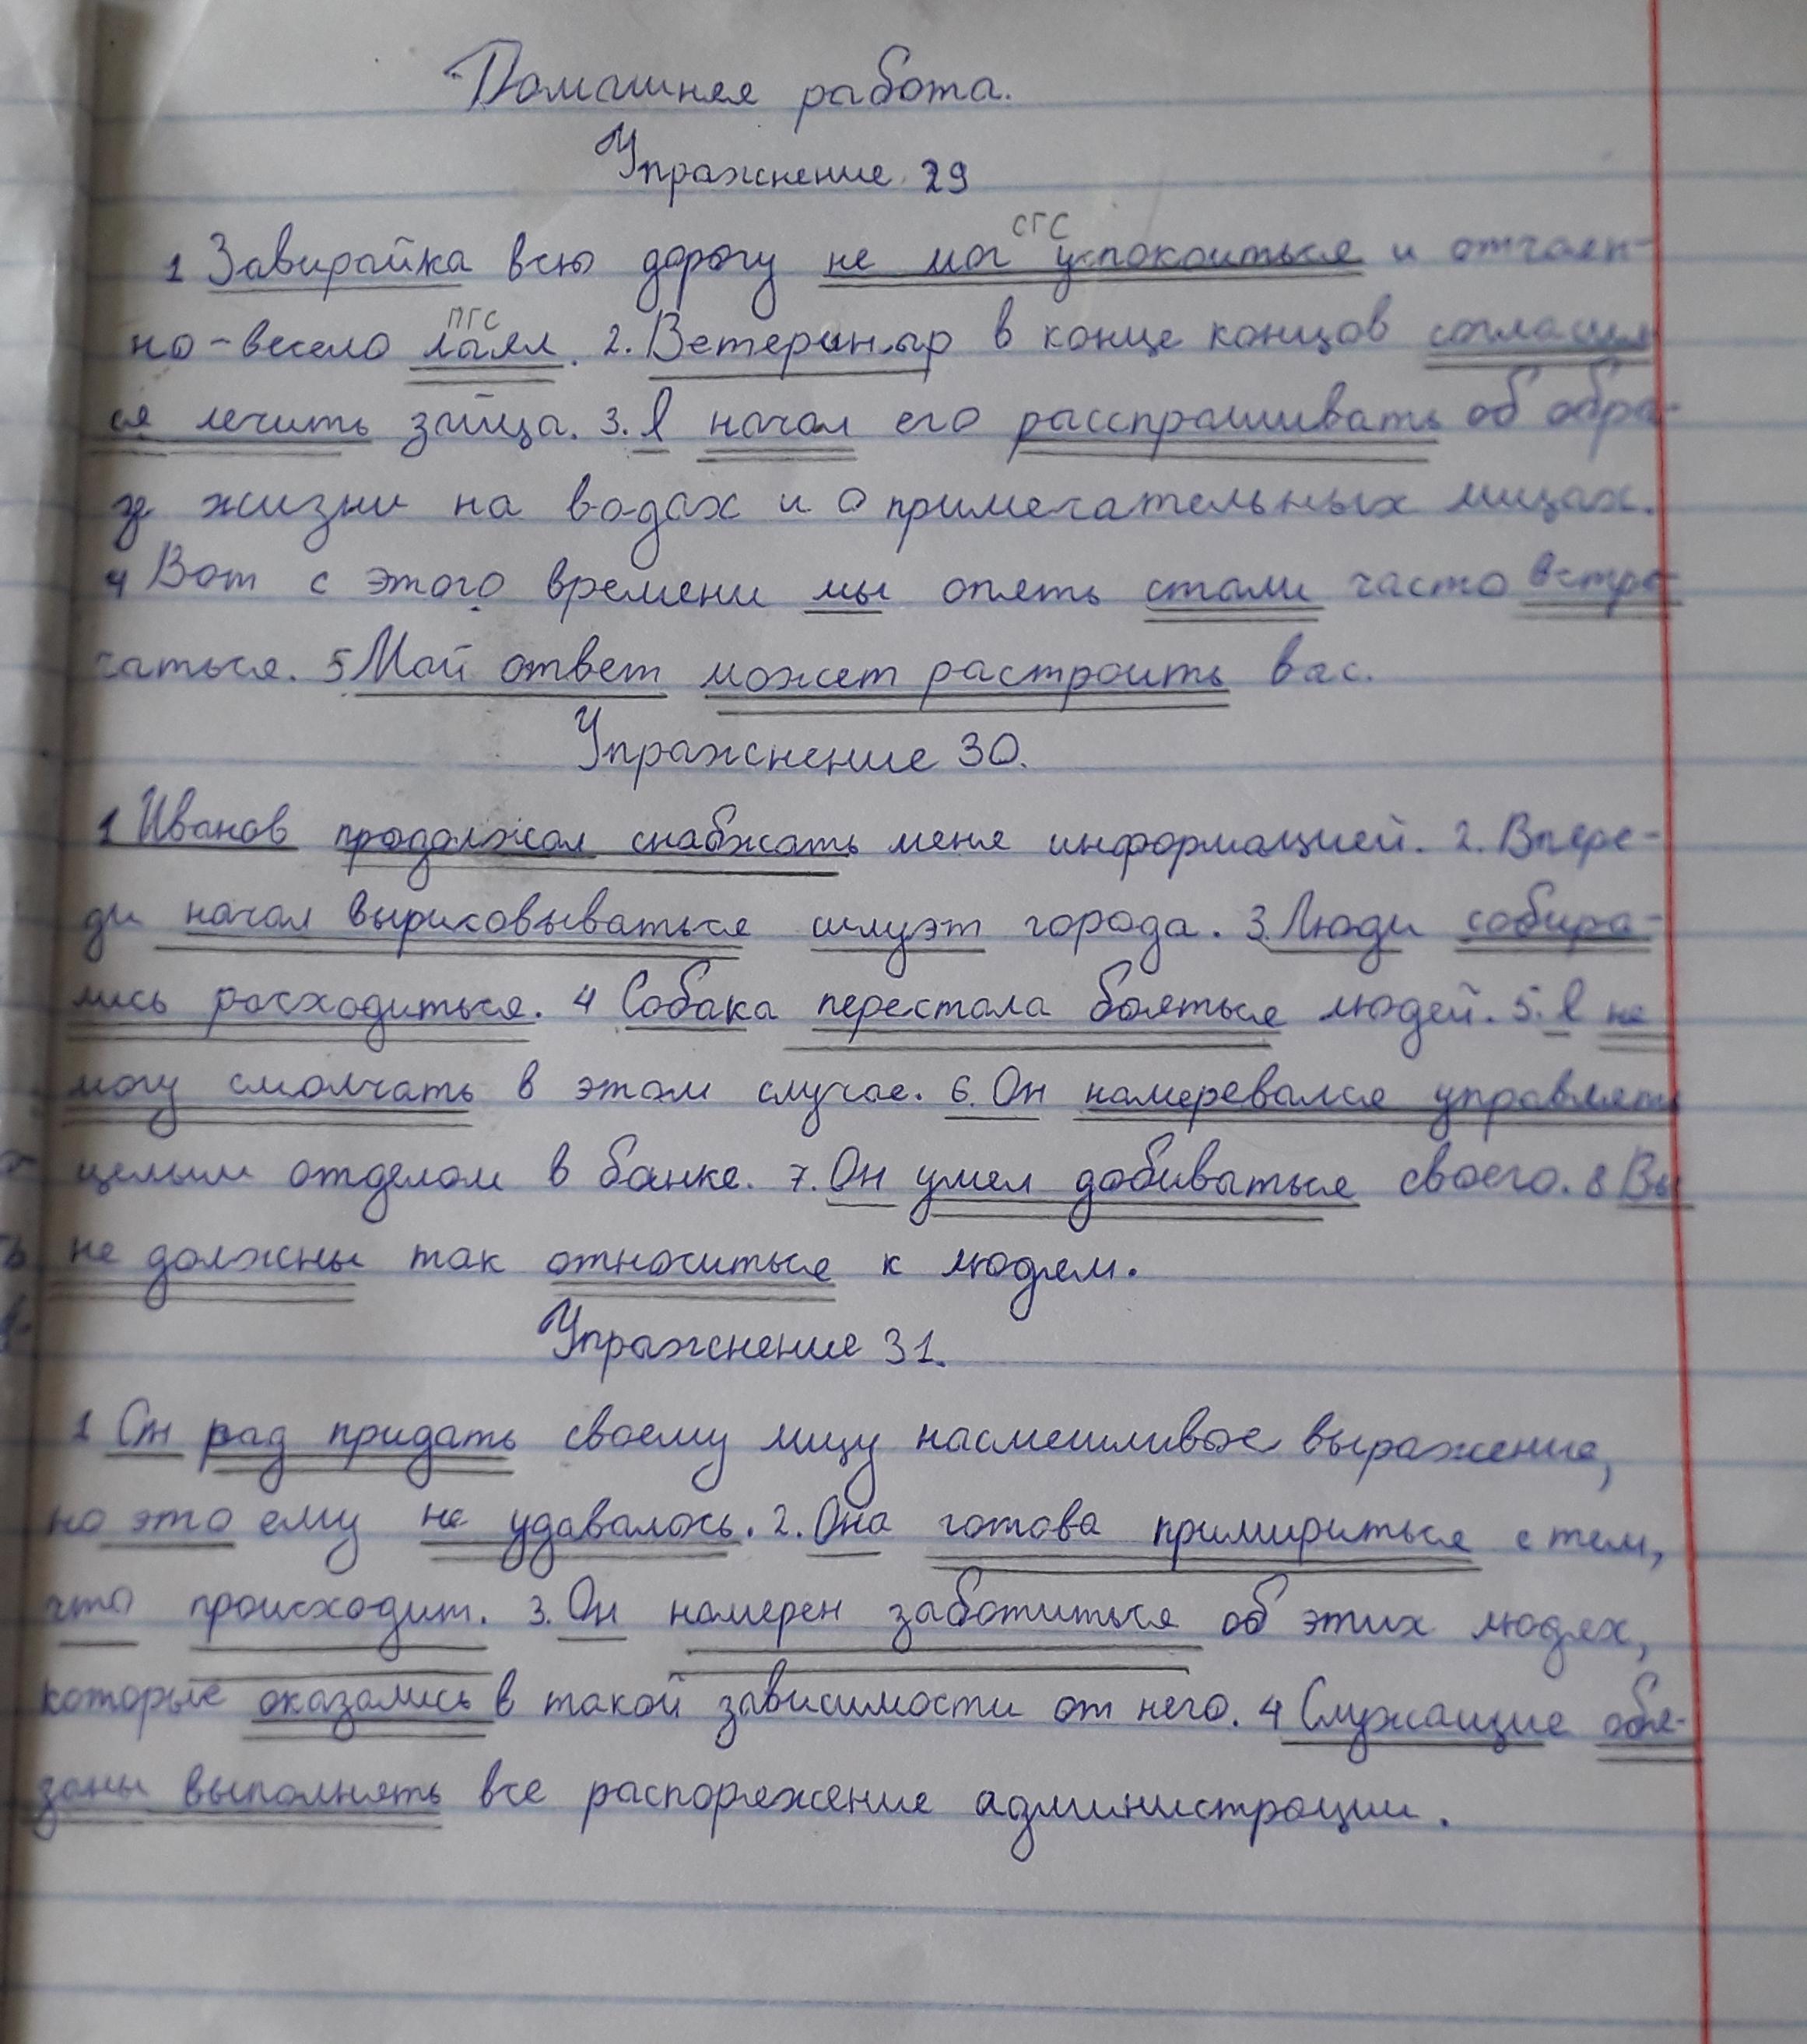 Домашняя работа.
Упражнение 29
СГС
1 Завирайка всю дорогу не мог успокоиться и отчаян-
ПГС
но-весело лаял. 2. Ветеринар в конце концов согласил
ся лечить зайца. 3. Я начал его расспрашивать об обра-
зе жизни на водах и о примечательных лицах.
4 Вот с этого времени мы опять стали часто встре-
чаться. 5 Мой ответ может растроить вас.
Упражнение 30.
1 Иванов продолжал снабжать меня информацией. 2. Впере-
ди начал вырисовываться силуэт города. 3. Люди собира-
лись расходиться. 4 Собака перестала бояться людей. 5. Я не
могу смолчать в этом случае. 6. Он намеревался управлять
целым отделом в банке. 7. Он умел добиваться своего. 8 Вы
не должны так относиться к людям.
Упражнение 31.
1 Он рад придать своему лицу насмешливое выражение,
но это ему не удавалось. 2. Она готова примириться с тем,
что происходит. 3. Он намерен заботиться об этих людях,
которые оказались в такой зависимости от него. 4 Служащие обя-
заны выполнять все распоряжение администрации.